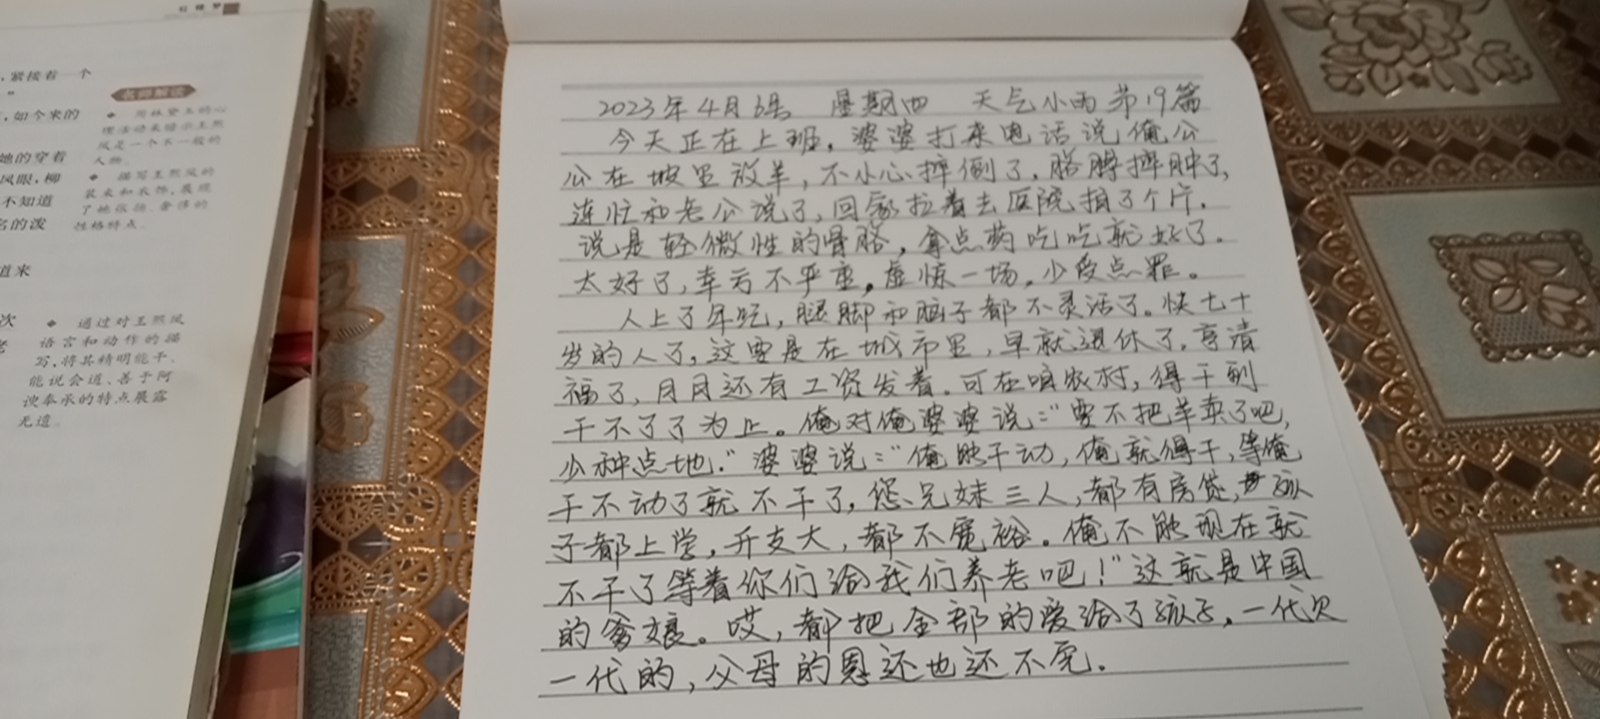 红楼梦
，紧接着一个
”
，如今来的
她的穿着
风眼，柳
不知道
名的泼
道来
次
老
名师解读
◆ 用林黛玉的心
理活动来暗示王熙
凤是一个不一般的
人物。
◆ 描写王熙凤的
装束和衣饰、展现
了她张扬、奢侈的
性格特点。
◆ 通过对王熙凤
语言和动作的描
写，将其精明能干、
能说会道、善于阿
谀奉承的特点展露
无遗。
2023年4月6号 星期四 天气小雨 第19篇
今天正在上班，婆婆打来电话说俺公
公在坡里放羊，不小心摔倒了，胳膊摔肿了，
连忙和老公说了，回家拉着去医院拍了个片，
说是轻微性的骨胳，拿点药吃吃就好了。
太好了，幸亏不严重。虚惊一场，少受点罪。
人上了年纪，腿脚和脑子都不灵活了。快七十
岁的人了，这要是在城市里，早就退休了，享清
福了，月月还有工资发着。可在咱农村，得干到
干不了了为止。俺对俺婆婆说：“要不把羊卖了吧，
少种点地。”婆婆说：“俺能干动，俺就得干，等俺
干不动了就不干了，您兄妹三人，都有房贷，孩
子都上学，开支大，都不宽裕。俺不能现在就
不干了等着你们给我们养老吧！”这就是中国
的爹娘。哎，都把全部的爱给了孩子，一代欠
一代的，父母的恩还也还不完。